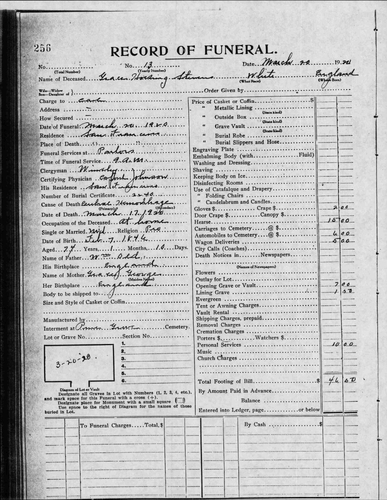 256
RECORD OF FUNERAL.
No. 13 Date, March 20 1920
(Total Number) (Yearly Number)
Name of Deceased, Grace Stevens White England
(What Race) (Where Born)
Wife—Widow
Son—Daughter of Order Given by
Charge to
Address
How Secured
Date of Funeral, March 20, 1920
Residence San Francisco
Place of Death
Funeral Services at Parlors
Time of Funeral Service, 9 a.m.
Clergyman
Certifying Physician Johnson
His Residence San Francisco
Number of Burial Certificate
Cause of Death Cerebral Hemorrhage
Date of Death, March 17, 1920
Occupation of the Deceased, At home
Single or Married, Religion,
Date of Birth, Feb. 7, 1846
Aged, 74 Years, Months, 10 Days.
Name of Father, Wm Odd
His Birthplace England
Name of Mother, Grace George
Her Birthplace England
Body to be shipped to
Size and Style of Casket or Coffin,
Manufactured by
Interment at Cemetery.
Lot or Grave No.
3-20-20.
1.
2.
3.
4.
5.
6.
Diagram of Lot or Vault
Designate all Graves in Lot with Numbers (1, 2, 3, 4, etc.),
and mark space for this Funeral with a cross (+)
Designate place for Monument with a small square (□)
Use space to the right of Diagram for the names of those
buried in Lot.
Price of Casket or Coffin,
" Metallic Lining
" Outside Box
" Grave Vault
" Burial Robe
" Burial Slippers and Hose
Engraving Plate
Embalming Body (with Fluid)
Washing Body
Shaving
Keeping Body on Ice
Disinfecting Rooms
Use of Catafalque and Drapery
" Folding Chairs
" Candelabrum and Candles
Gloves $ Crape $ 2.00
Door Crape $ Canopy $
Hearse 15.00
Carriages to Cemetery @ $
Automobiles to Cemetery @ $ 6.00
Wagon Deliveries 5.00
City Calls (Coaches)
Death Notices in Newspapers
(Names of Newspapers)
Flowers
Outlay for Lot
Opening Grave or Vault 7.00
Lining Grave 1.50
Evergreen
Tent or Awning Charges
Vault Rental
Shipping Charges, prepaid
Removal Charges
Cremation Charges
Porters $ Watchers $
Personal Services 10.00
Music
Church Charges
Total Footing of Bill, $ 46.50
By Amount Paid in Advance
Balance
Entered into Ledger, page or below
To Funeral Charges Total, $ By Cash $